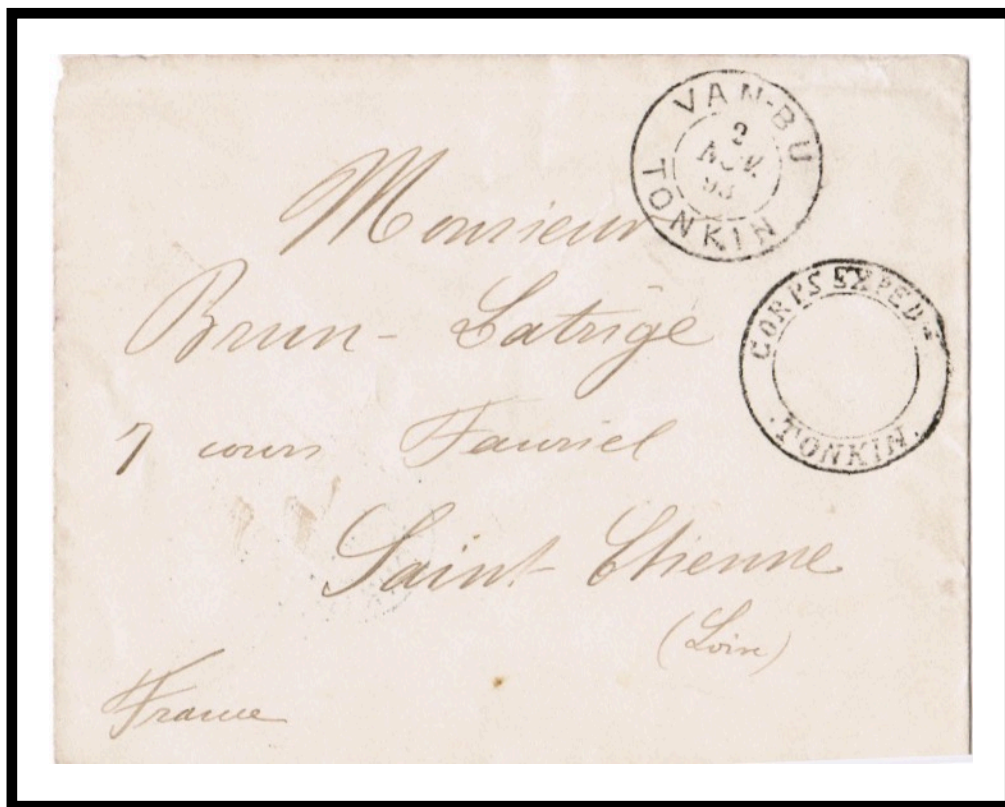 VAN-BU
2
NOV.
93
TONKIN
CORPS EXPED.re
.TONKIN.
Monsieur
Brun-Latrige
7 cours Fauriel
Saint Etienne
(Loire)
France